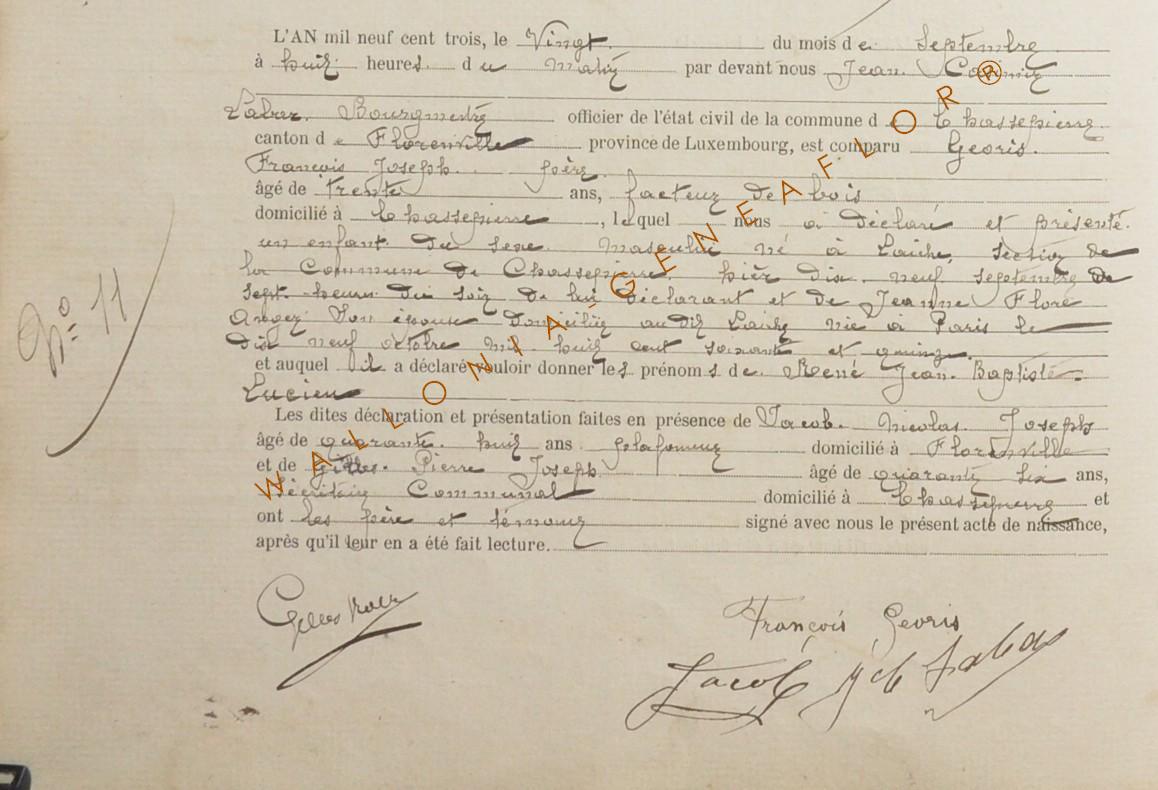 L'AN mil neuf cent trois, le Vingt du mois de Septembre
à huit heures du matin par devant nous Jean
Bourgmestre officier de l'état civil de la commune de Chassepierre
canton de Florenville province de Luxembourg, est comparu Georis
François Joseph père
âgé de trente ans, facteur de bois
domicilié à Chassepierre, lequel nous a déclaré et présenté
un enfant du sexe masculin né à Laiche, section de
la Commune de Chassepierre hier dix neuf septembre
sept heures du soir de lui déclarant et de Jeanne Flore
son épouse domiciliée audit Laiche née à Paris le
dix neuf octobre mil huit cent soixante et quinze.
et auquel il a déclaré vouloir donner les prénoms de René Jean Baptiste
Lucien
Les dites déclaration et présentation faites en présence de Jacob Nicolas Joseph
âgé de quarante huit ans plafonneur domicilié à Florenville
et de Gilles Pierre Joseph âgé de quarante six ans,
Secrétaire Communal domicilié à Chassepierre et
ont les père et témoins signé avec nous le présent acte de naissance,
après qu'il leur en a été fait lecture.
N° 11
François Georis
Jacob
WALLONIA-GENEAFLOR ®